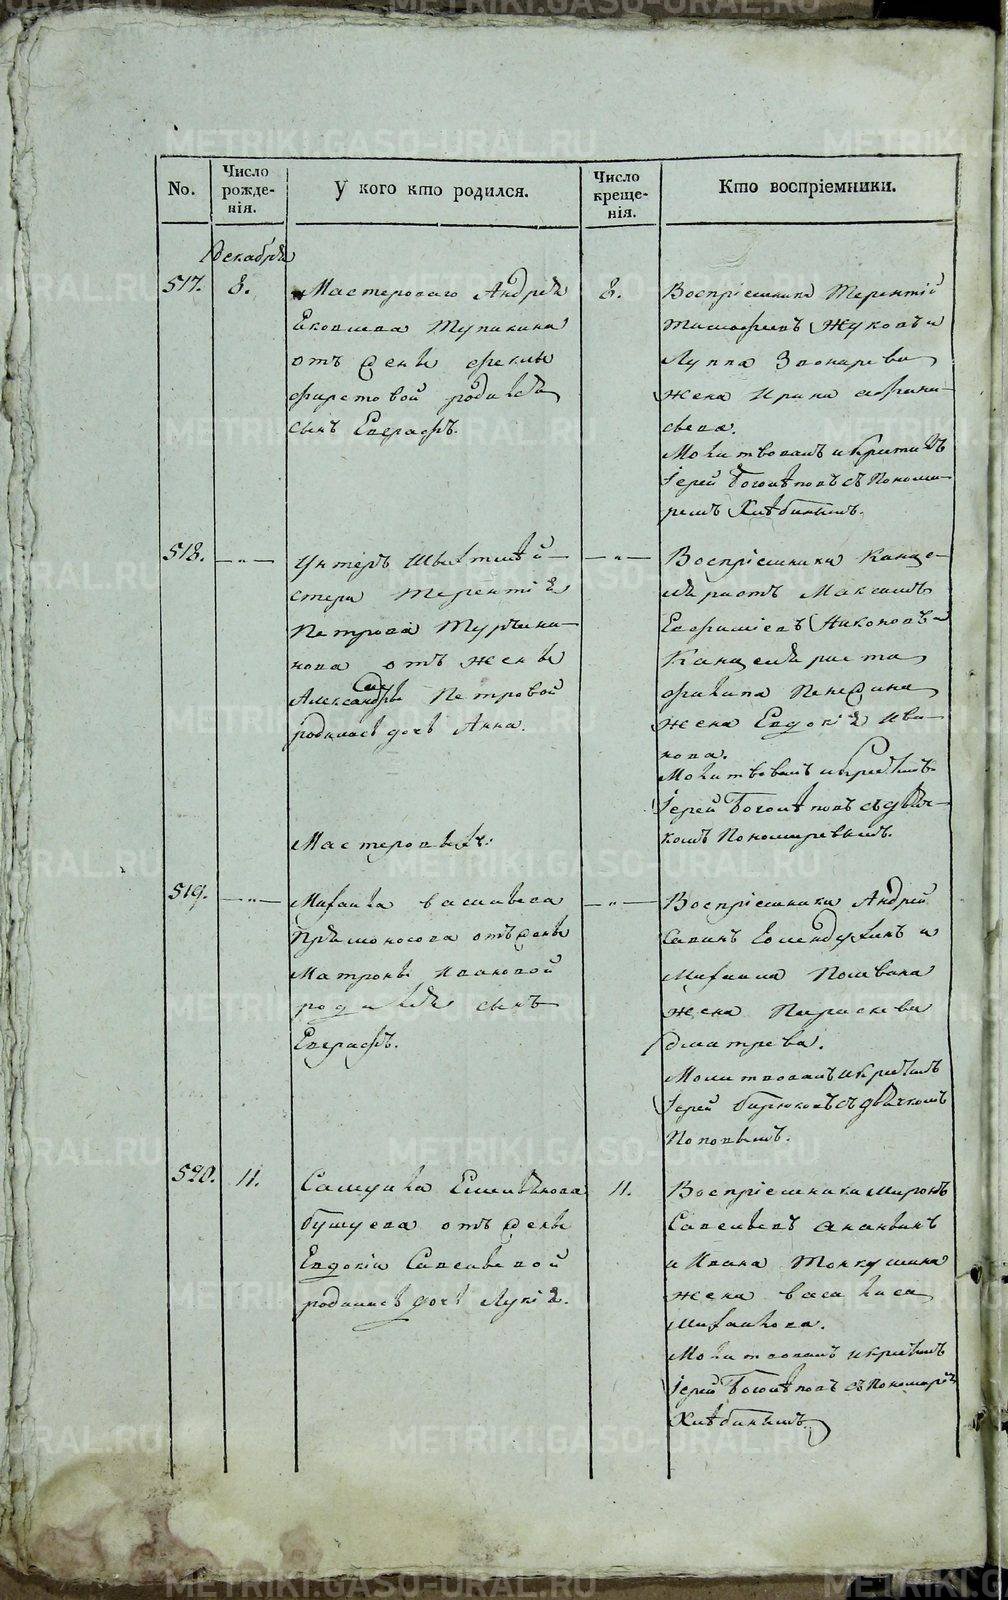 METRIKI.GASO-URAL.RU
No.
Число рожде-нія.
У кого кто родился.
Число креще-нія.
Кто воспріемники.
Декабря
517.
8.
Мастероваго Андрея
Яковлева Тупикина
отъ жены Феклы
Фирстовой родился
сынъ Евграфъ.
8.
Воспріемники Терентій
Тимофеевъ Жуковъ и
Луппа Звонарева
жена Ирина Афона-
сьева.
Молитвовалъ и крестилъ
Іерей Боголѣповъ съ Понома-
ремъ Хлѣбинымъ.
518.
— „ —
Унтеръ Шихтмей-
стера Терентія
Петрова Турчани-
нова отъ жены
Александры Петровой
родилась дочь Анна.
— „ —
Воспріемники Канце-
ляристъ Максимъ
Ефимьевъ Никоновъ и
Канцеляриста
Филипа
жена Евдокія Ива-
нова.
Молитвовалъ и крестилъ
Іерей Боголѣповъ съ дьяч-
комъ Пономаревымъ.
Мастеровыхъ:
519.
— „ —
Михаила Васильева
Прямоносова отъ жены
Матроны Ивановой
родился сынъ
Евграфъ.
— „ —
Воспріемники Андрей
Савинъ и
Михаила Поливана
жена Параскева
Дмитрева.
Молитвовалъ и крестилъ
Іерей Бирюковъ съ дьячкомъ
Поповымъ.
520.
11.
Самуила Емельянова
Бушуева отъ жены
Евдокіи Савельевой
родилась дочь Лукія.
11.
Воспріемники Миронъ
Савельевъ Ананьинъ
и Ивана Тонкушина
жена Василиса
Михайлова.
Молитвовалъ и крестилъ
Іерей Боголѣповъ съ Пономаремъ
Хлѣбинымъ.